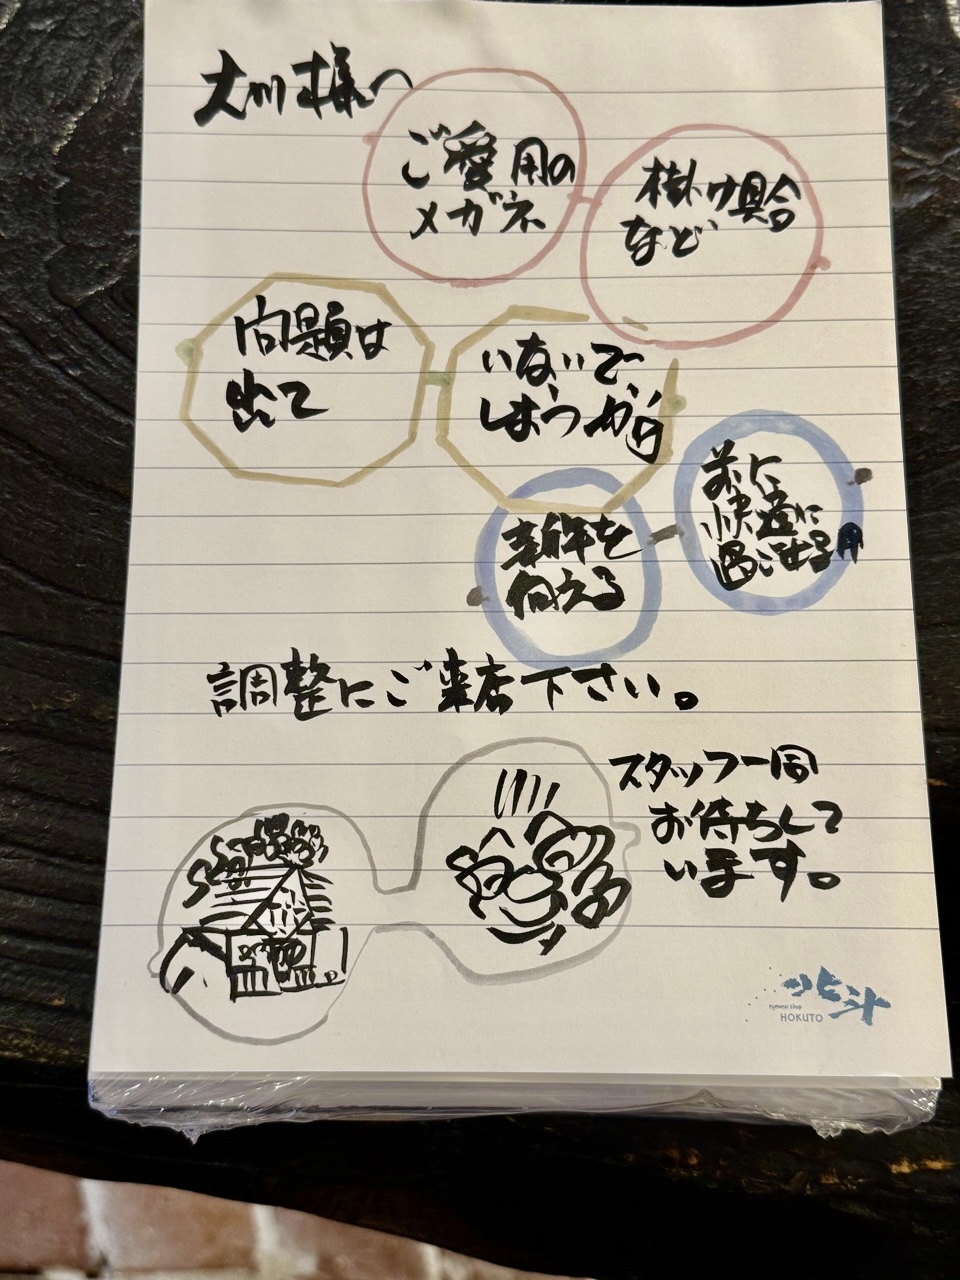 大川様へ
ご愛用の
メガネ
掛け具合
など
問題は
出て
いないで
しょうか
新年を
迎える
前に
快適に
過ごせる
調整にご来店下さい。
スタッフ一同
お待ちして
います。
北斗
eyewear shop
HOKUTO